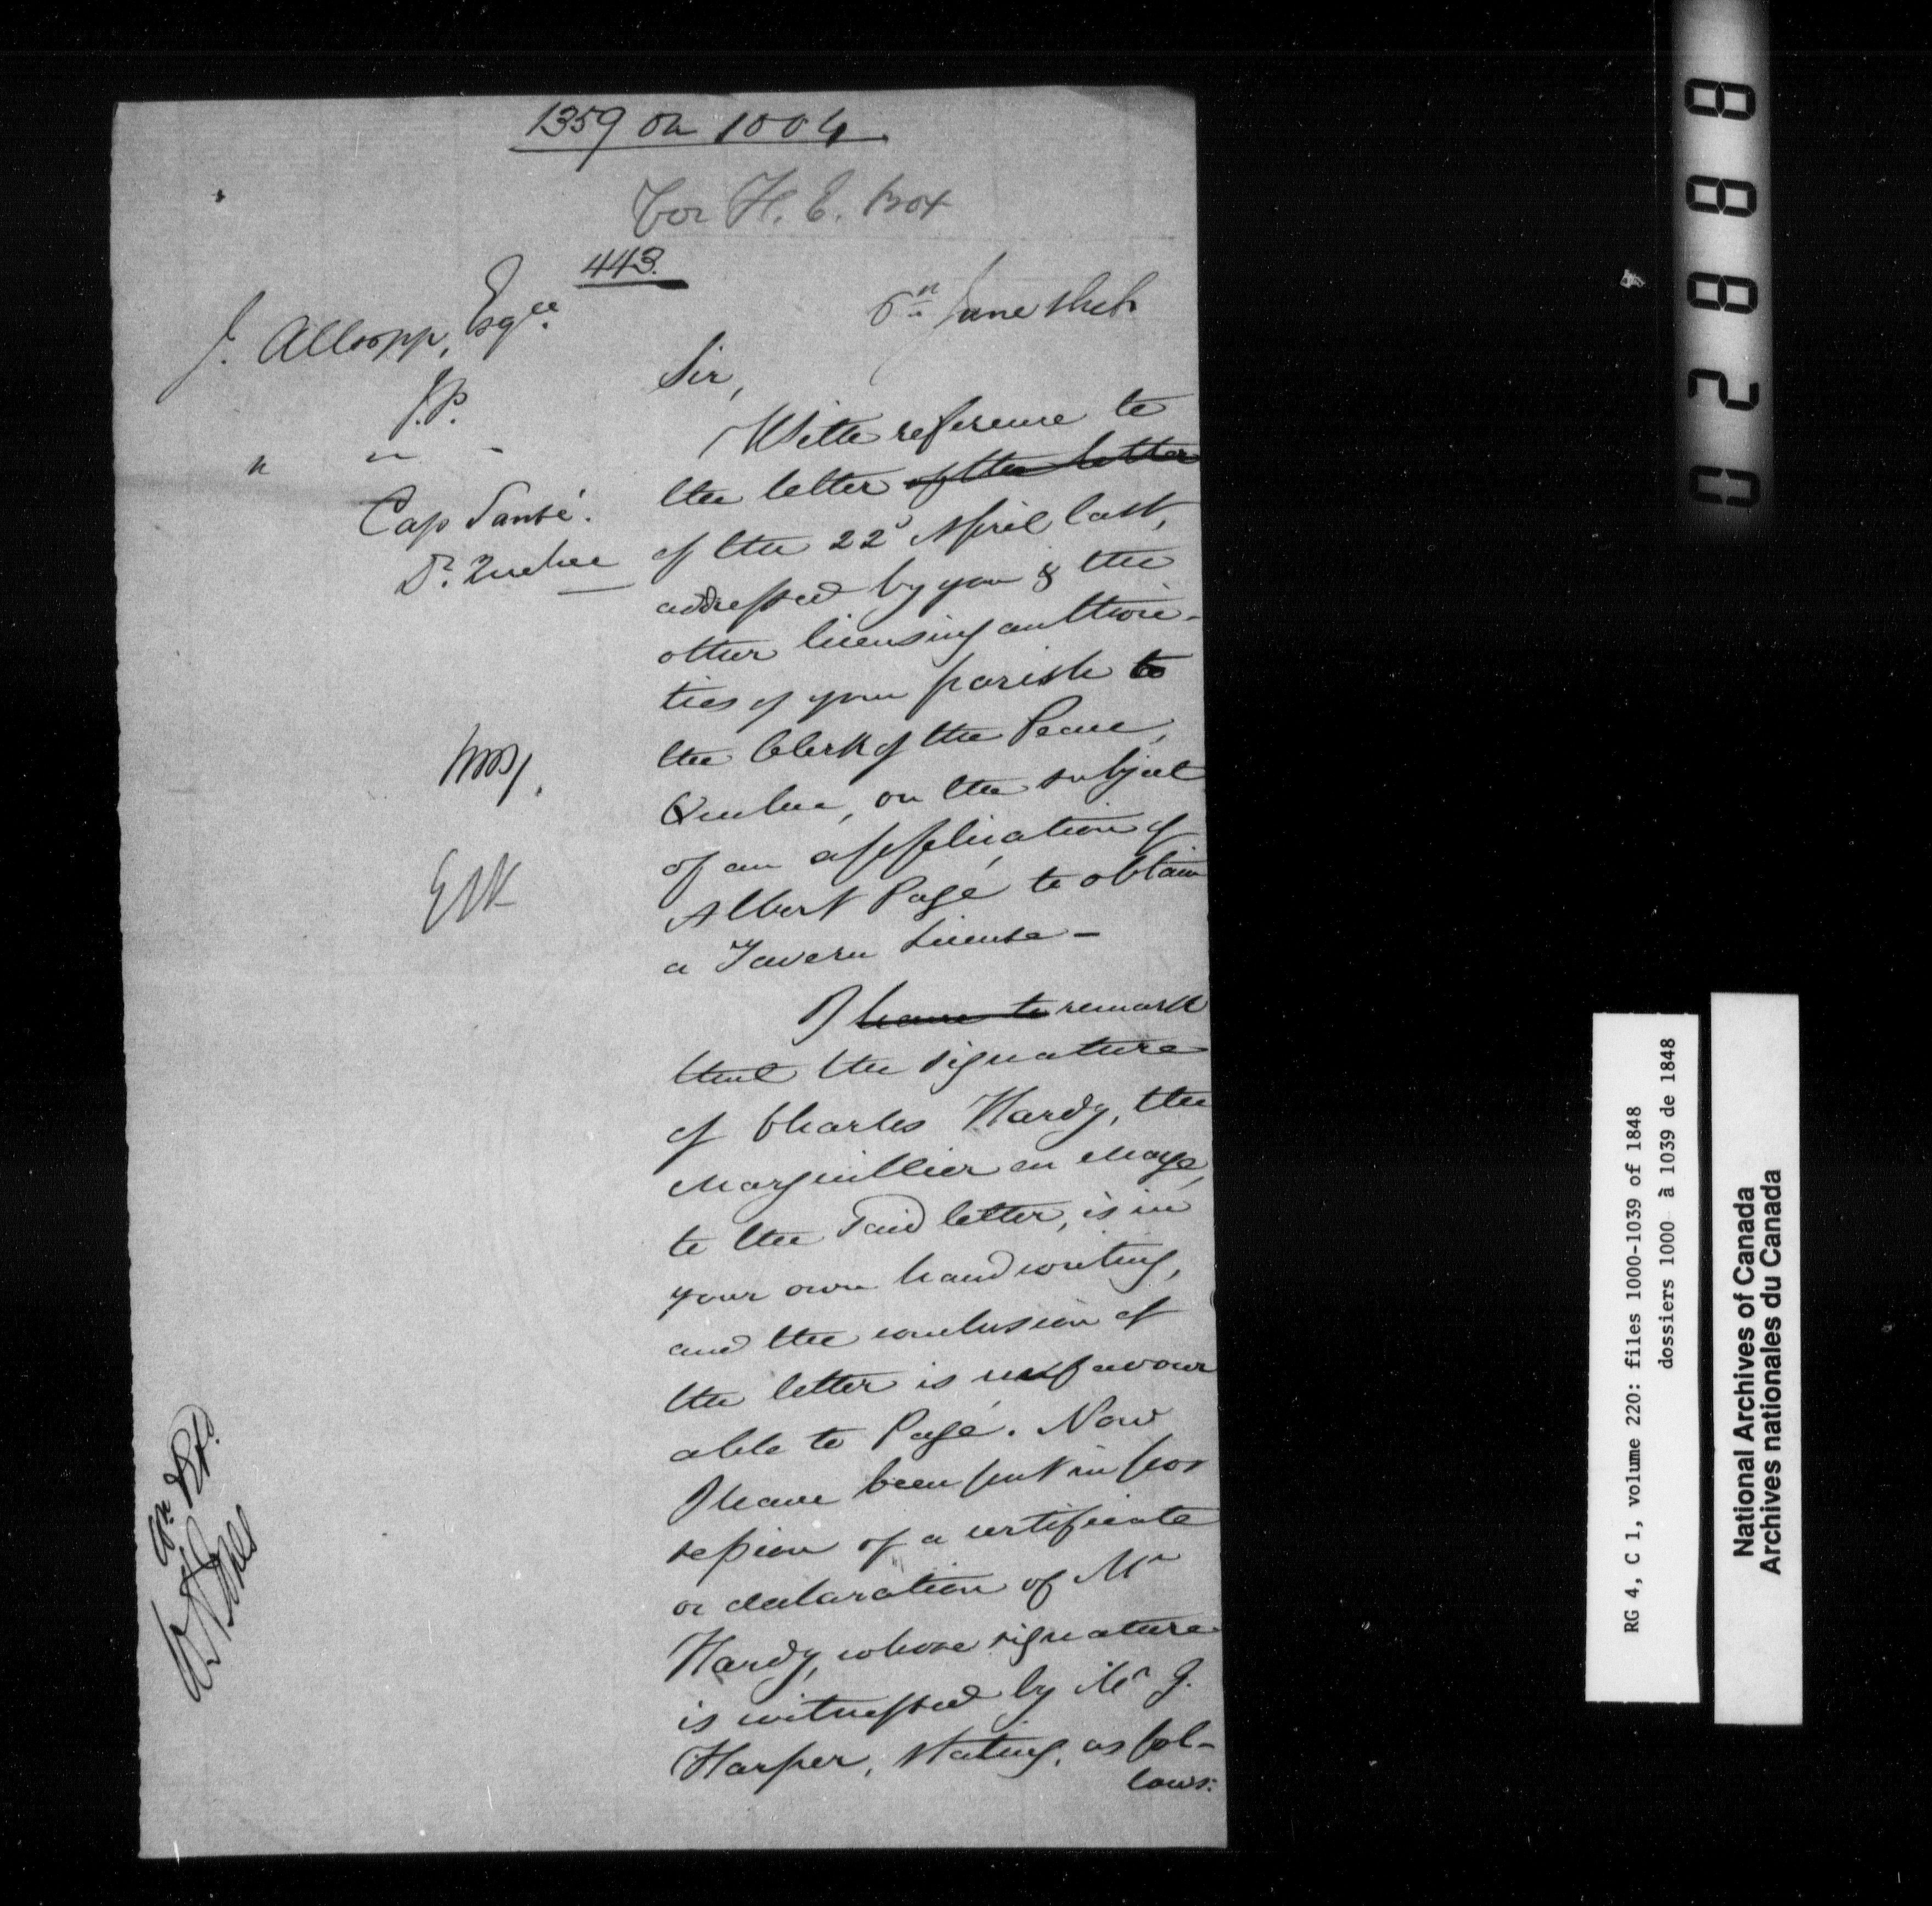 1359 on 1004
For H. E. Box
443.
J. Allsopp, Esqre
J.P.
" " -
Cap Santé.
Dt. Quebec
6th June 1848
Sir,
With reference to
the letter of the letter
of the 22d April last,
addressed by you & the
other licensing authori-
ties of your parish to
the Clerk of the Peace,
Quebec, on the subject
of an application of
Albert Pagé to obtain
a Tavern License -
I have to remark
that the signature
of Charles Hardy, the
Marguillier en charge,
to the said letter, is in
your own handwriting,
and the conclusion of
the letter is unfavour
able to Pagé. Now
I have been put in pos
session of a certificate
or declaration of Mr
Hardy, whose signature
is witnessed by Mr J.
Harper, stating, as fol-
lows:
0 2 8 8 8
RG 4, C 1, volume 220: files 1000-1039 of 1848
dossiers 1000 à 1039 de 1848
National Archives of Canada
Archives nationales du Canada